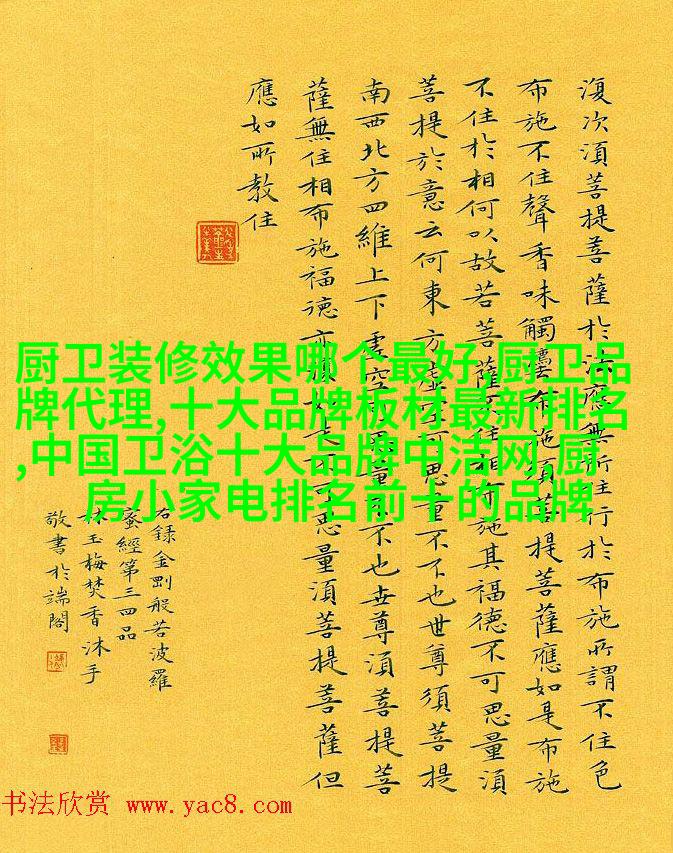 厨卫装修效果哪个最好,厨卫品
牌代理,十大品牌板材最新排名
,中国卫浴十大品牌中洁网,厨
房小家电排名前十的品牌
復次湏菩提菩薩於法應無所住行於布施所謂不住色
布施不住聲香味觸灋布施湏菩提菩薩應如是布施
不住於相何以故若菩薩不住相布施其福德不可思量湏
菩提於意云何東方虛空可思量不不也世尊須菩提
南西北方四維上下虛空可思量不不也世尊湏菩提菩
薩無住相布施福德亦復如是不可思量湏菩提菩薩但
應如所教住
右錄金剛般若波羅
蜜經第三四品
林玉梅焚香沐手
敬書於端閣
书法欣赏 www.yac8.com